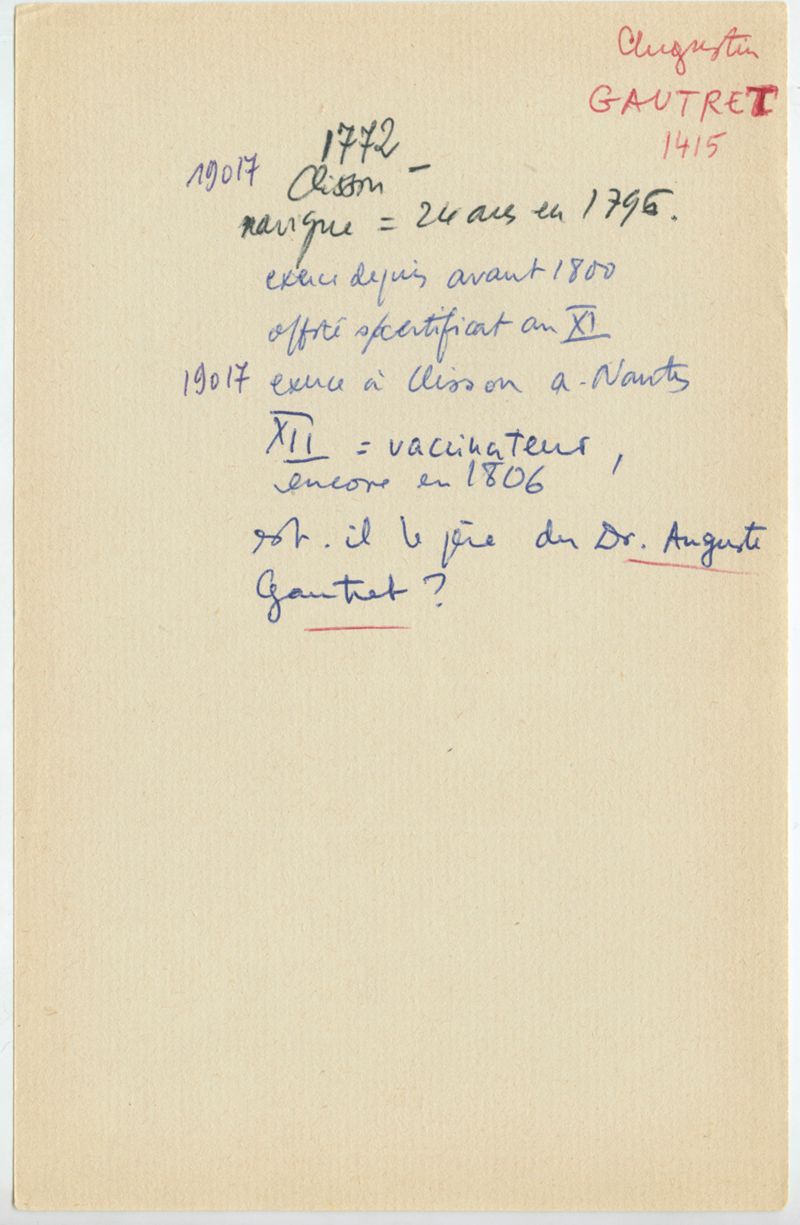 Augustin
GAUTRET
1415
1772 -
19017 Clisson
navigue = 24 ans en 1796.
exerce depuis avant 1800
offre s/certificat an XI
19017 exerce à Clisson a. Nantes
XII = vaccinateur,
encore en 1806
est-il le père du Dr. Auguste
Gautret ?